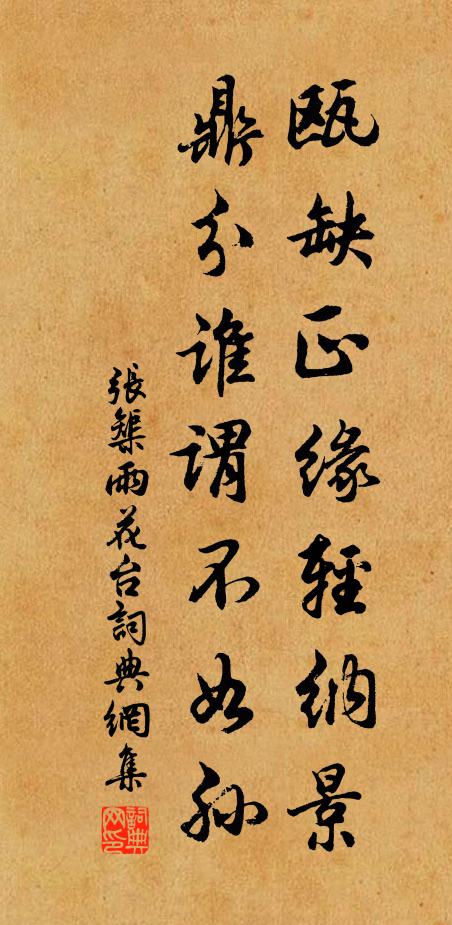 瓯缺正缘轻纳景
鼎分谁谓不如孙
張榘雨花台詞典網集
詞典网印